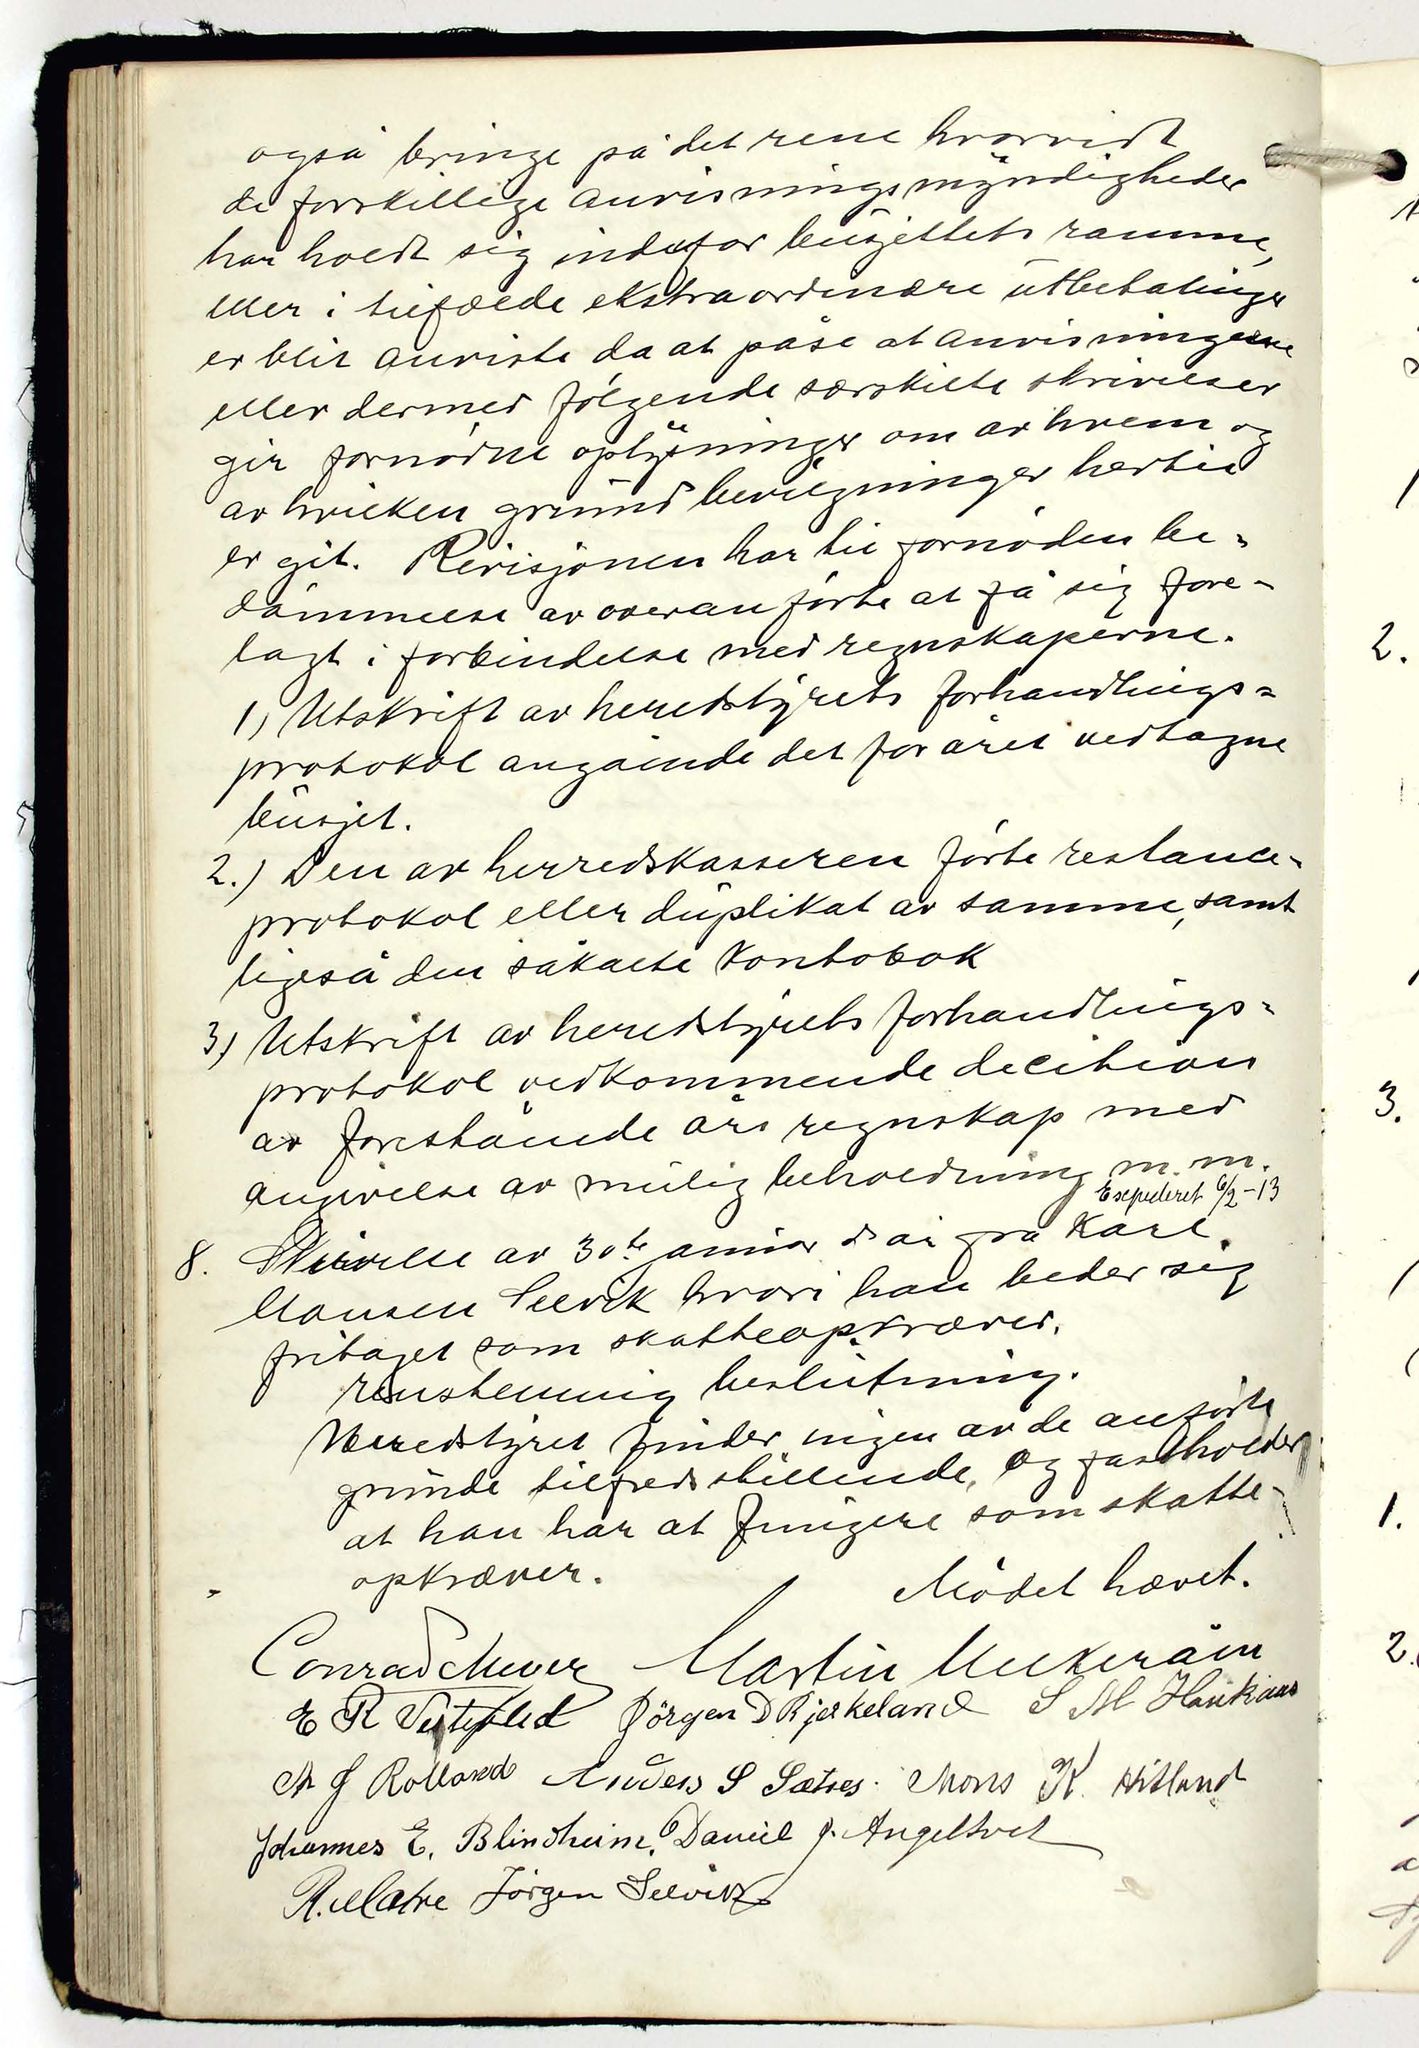 også bringe på det rene hvorvidt
de forskillige anvisningsmyndigheder
har holdt sig indenfor büsjettets ramme,
eller i tilfælde ekstraordinære ütbetalinger
er blit anviste da at påse at anvisningerne
eller dermed følgende særskilte skrivelser
gir fornødne oplysninger om av hvem og
av hvilken gründ bevilgninger hertil
er git. Revisjonen har til fornøden be-
dømmelse av overanførte at få sig fore-
lagt i forbindelse med regnskaperne.
1) Utskrift av heredstyrets forhandlings-
protokol angående det for året vedtagne
büsjet.
2.) Den av herredskasseren førte restance-
protokol eller düplikat av samme, samt
ligeså den såkalte Kontobok
3) Utskrift av heredstyrets forhandlings-
protokol vedkommende decition
av forestående års regnskap med
angivelse av mülig beholdning m.m.
Expederet 6/2-13
8. Skrivelse av 30te januar d år fra Karl
Monsen Selvik hvori han beder sig
fritaget som skatteopkræver.
Enstemmig beslütning.
Heredstyret finder ingen av de anførte
gründe tilfredsstillende, og fastholder
at han har at fungere som skatte-
opkræver.
Mødet hævet.
Conrad Mever Martin
E R Jørgen D Bjerkeland S M Haukaas
M J Rolland Anders S Sætres. Mons K. Hitland
Johannes E. Blindheim, Daniel J. Angeltvet
R. Matre Jörgen Selvik